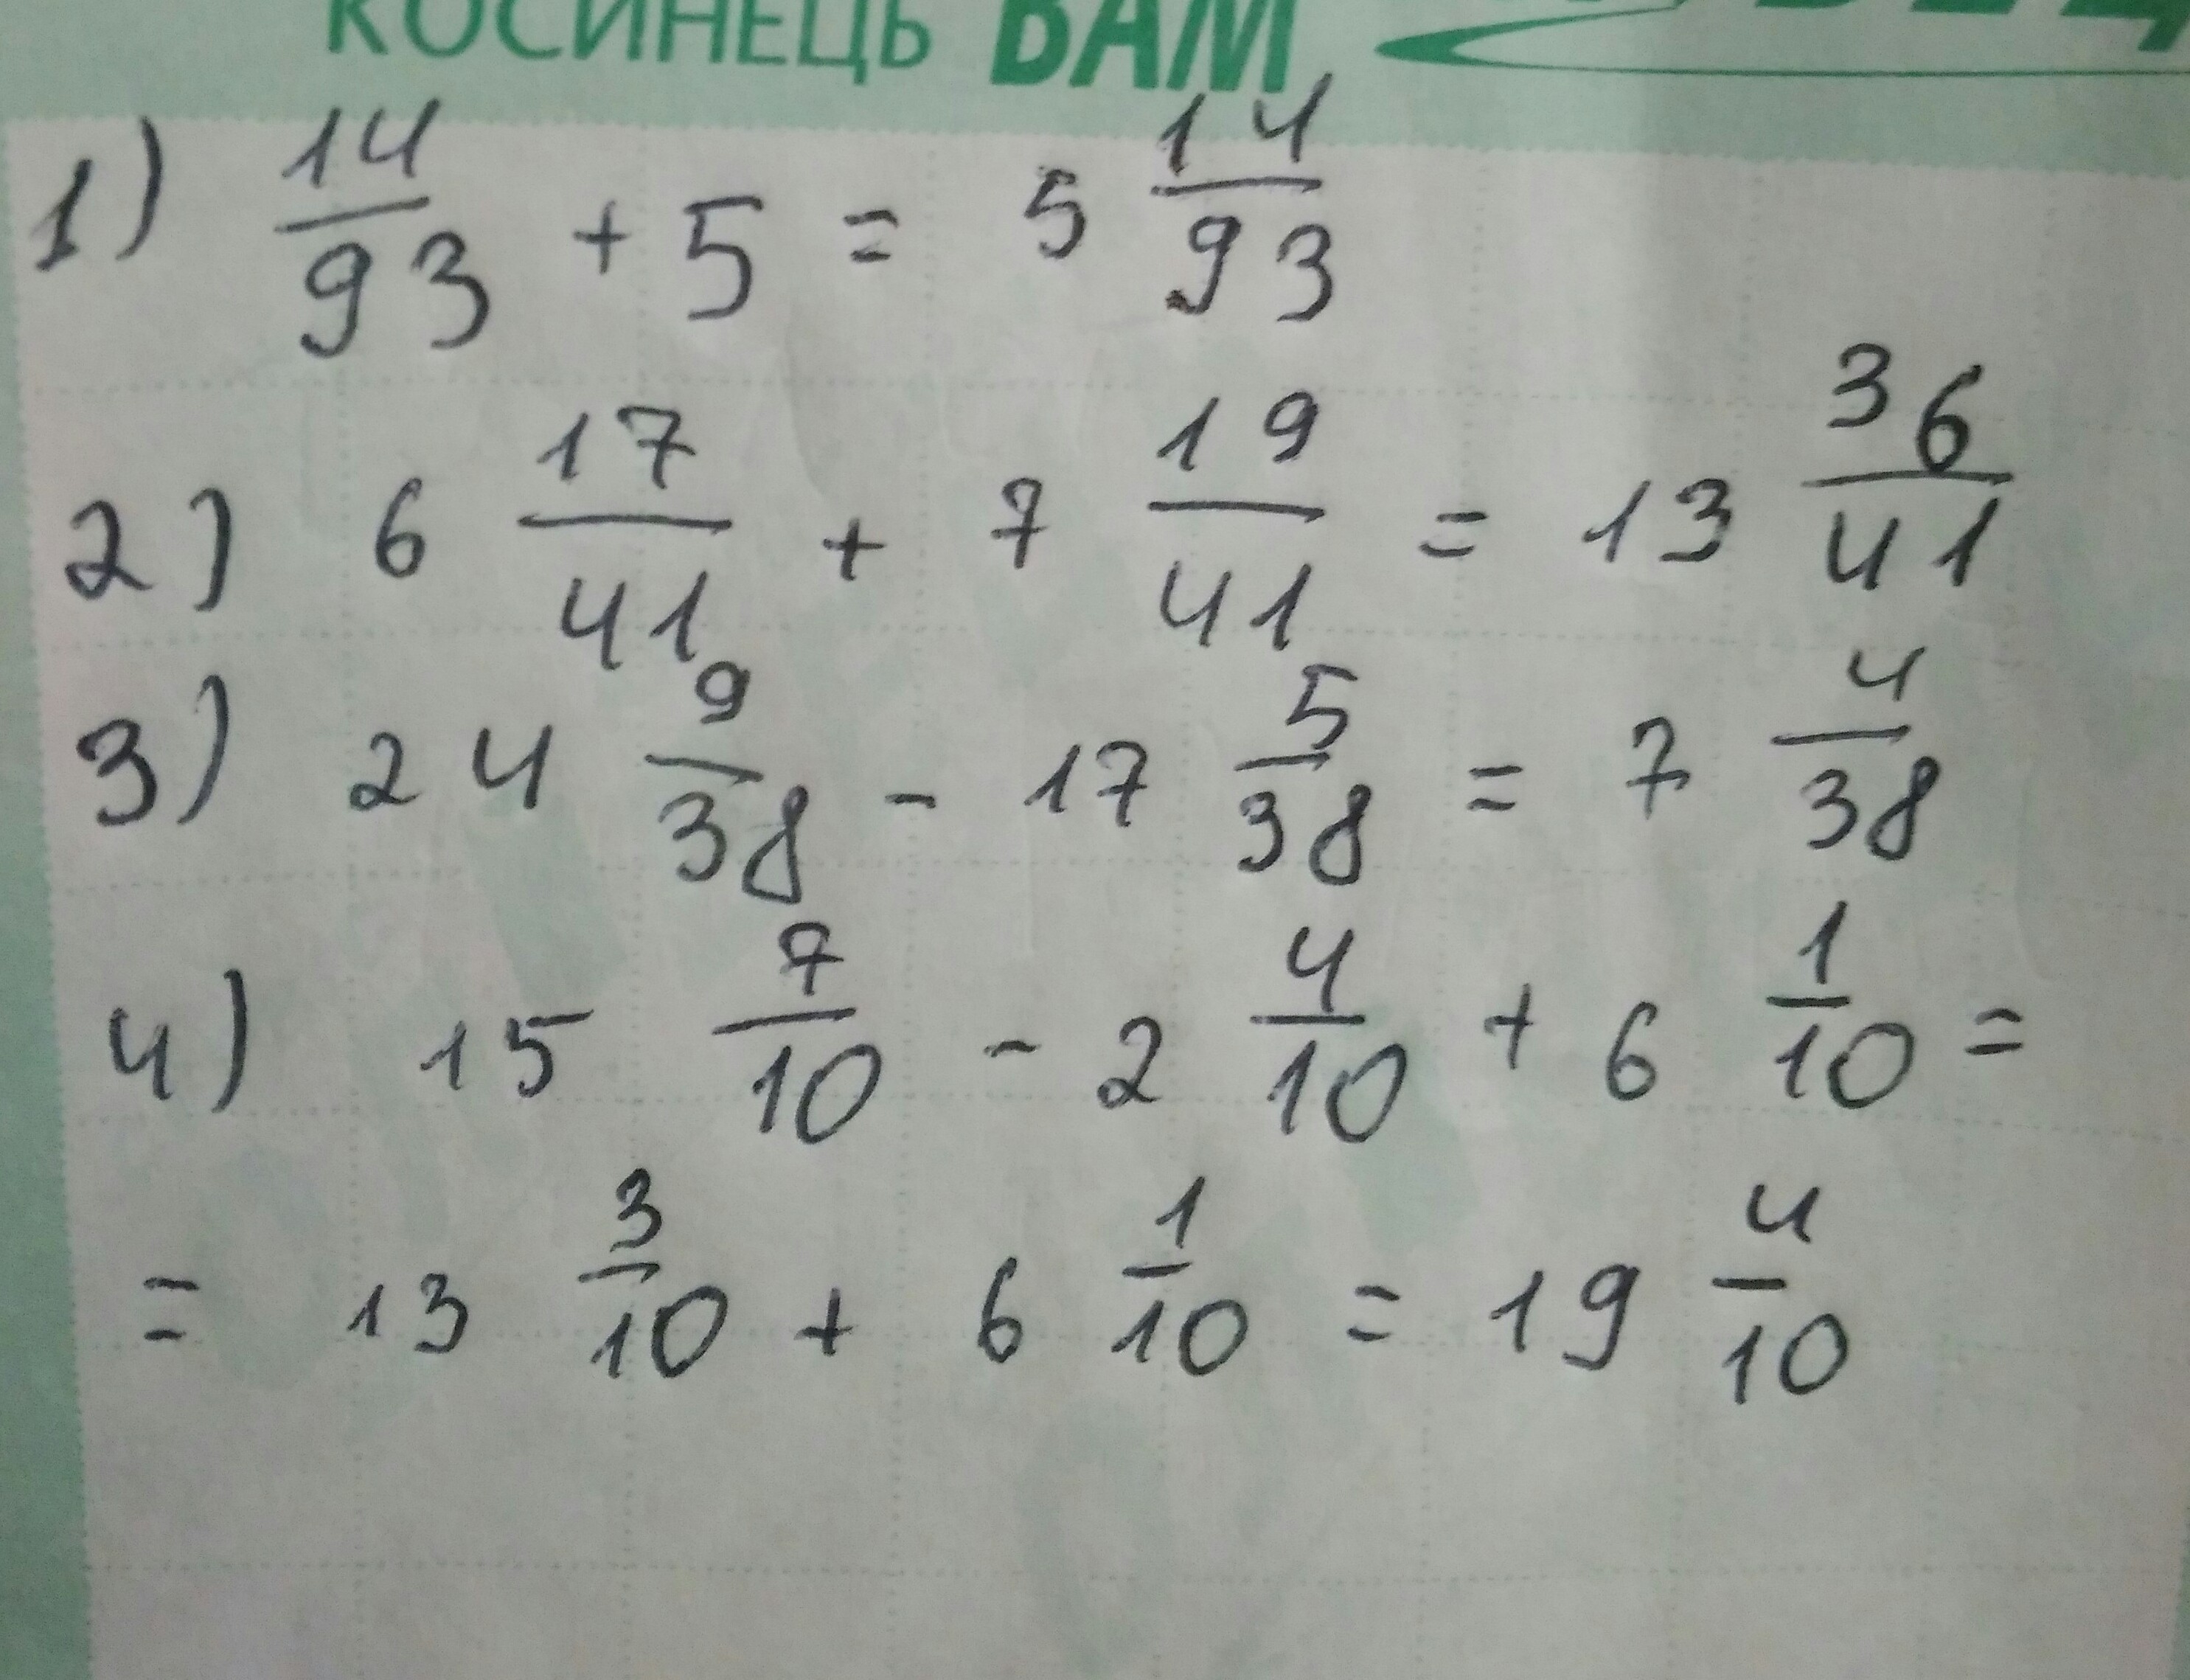 КОСИНЕЦЬ ВАМ
1) 14/93 + 5 = 5 14/93
2) 6 17/41 + 7 19/41 = 13 36/41
3) 24 9/38 - 17 5/38 = 7 4/38
4) 15 7/10 - 2 4/10 + 6 1/10 =
= 13 3/10 + 6 1/10 = 19 4/10